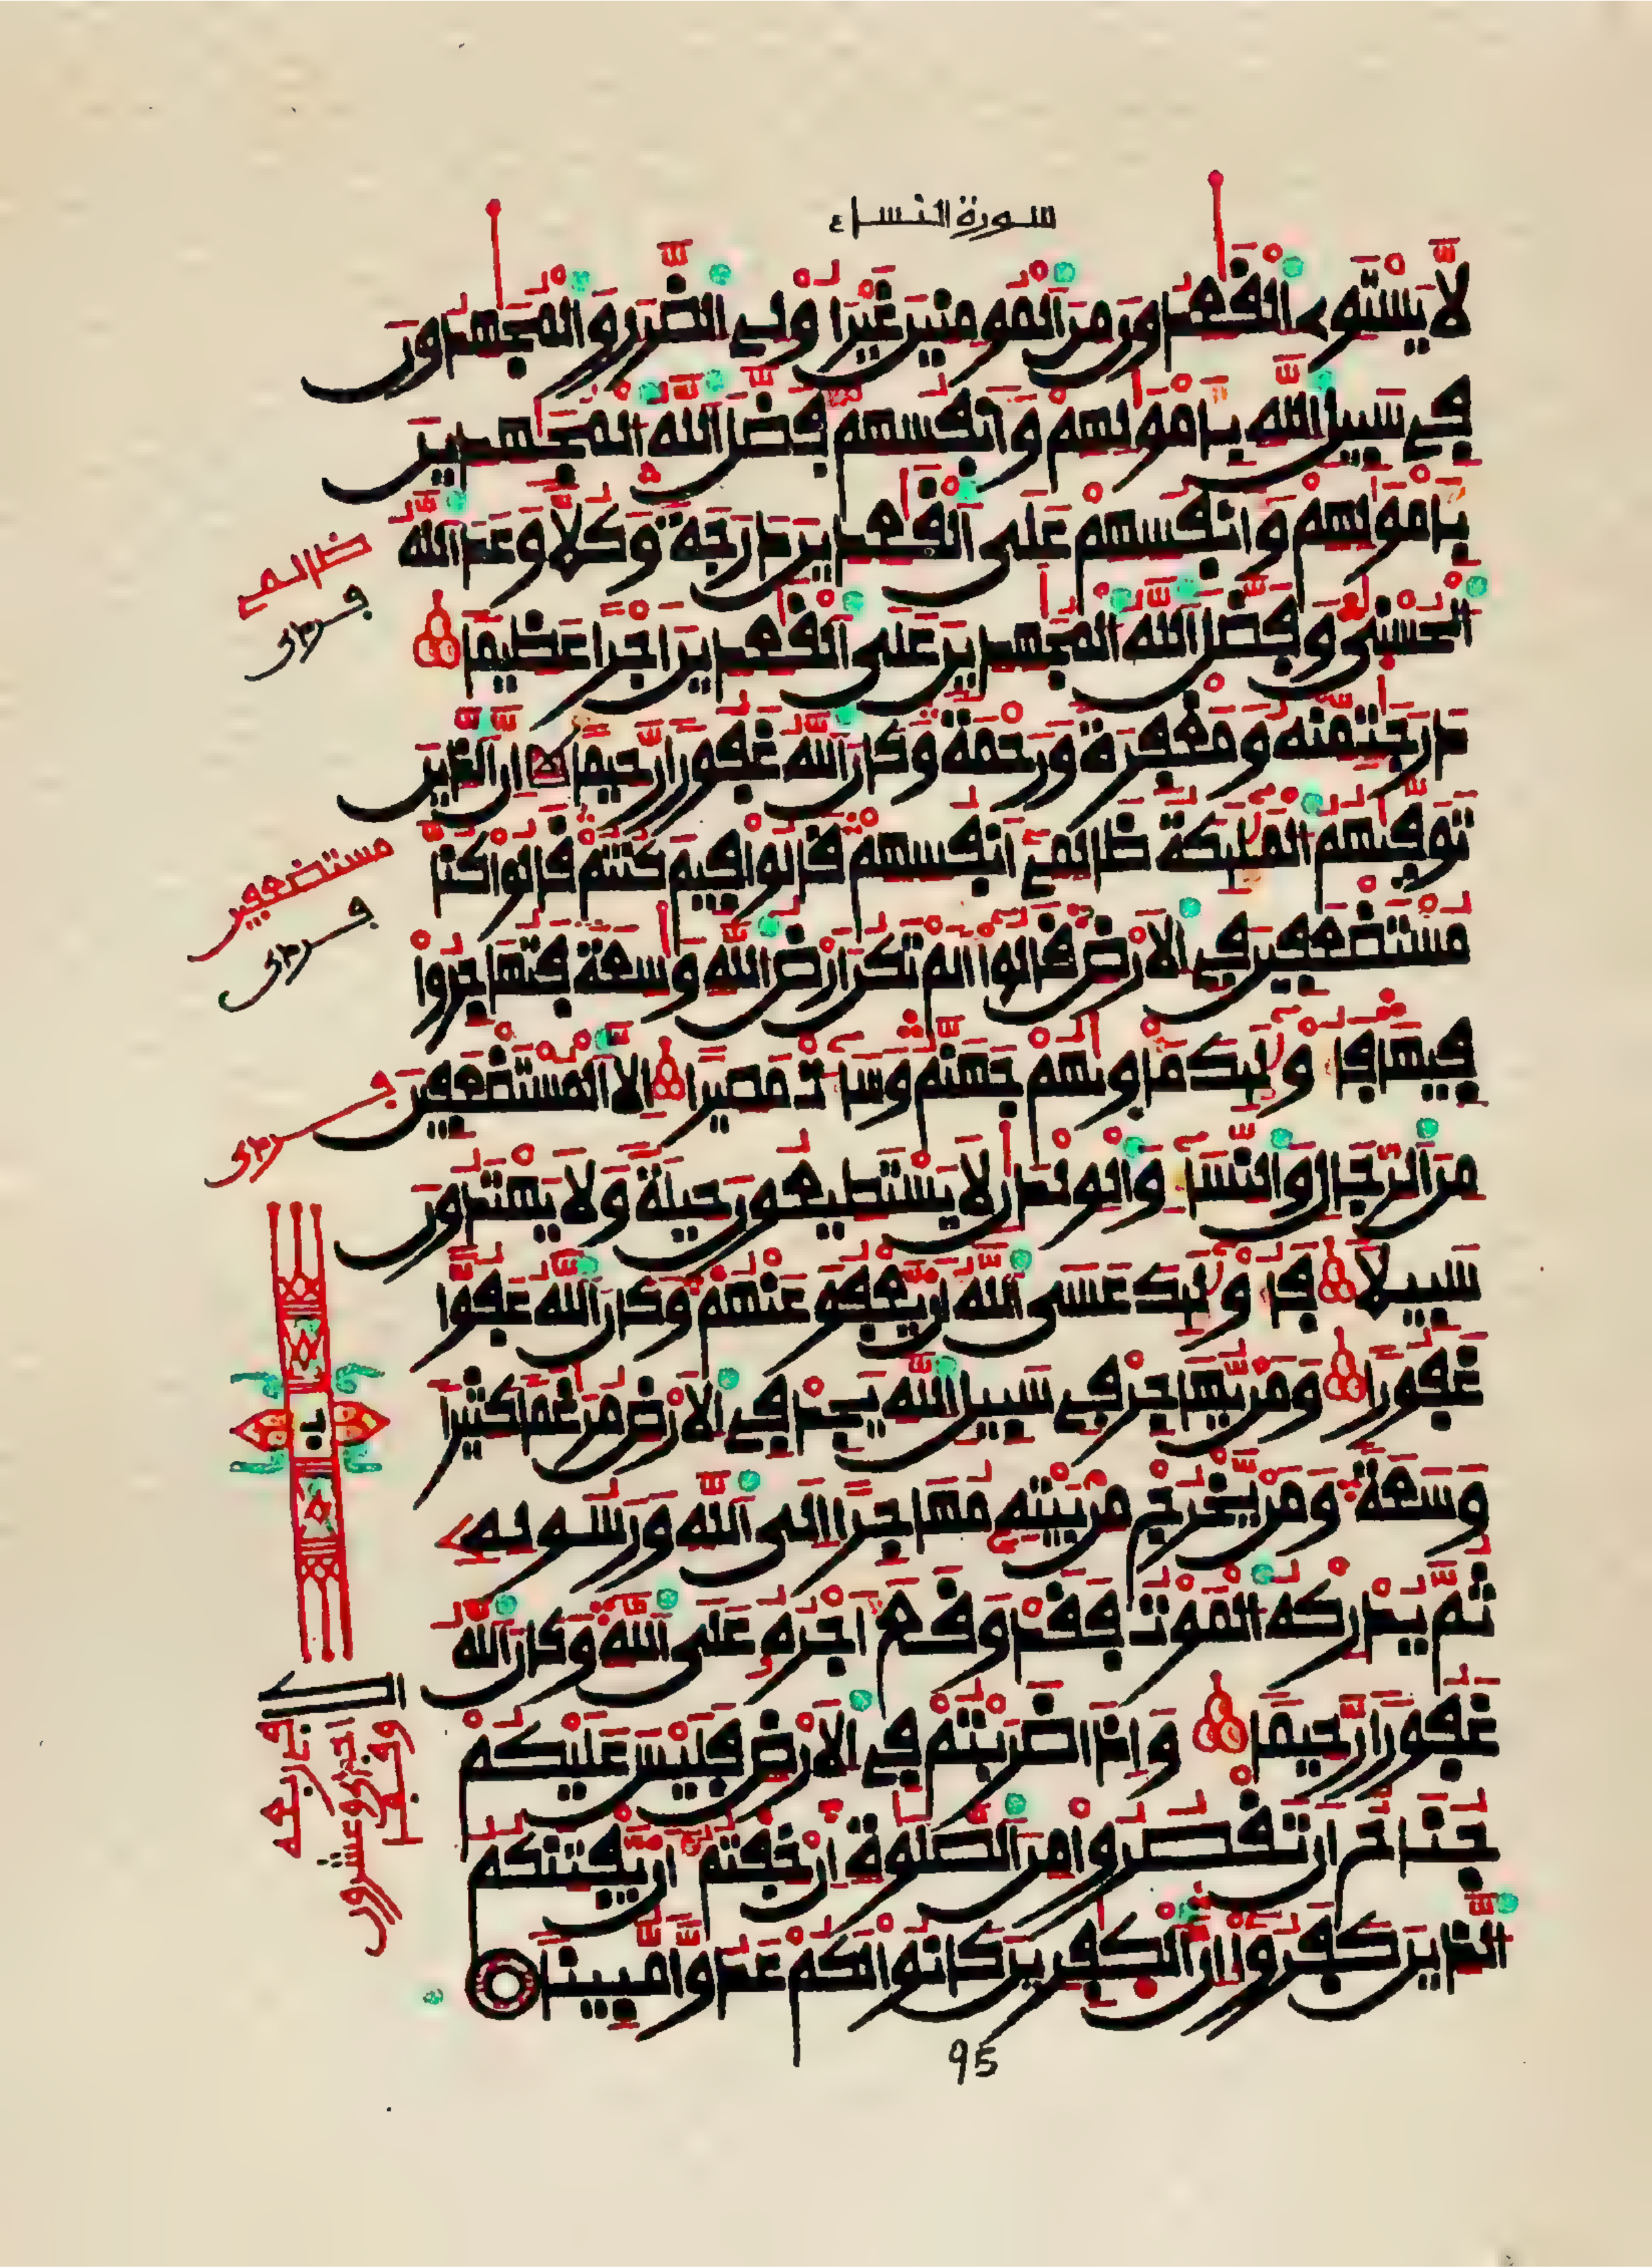 سورة النساء
لا يستوى القعدون من المومنين غير اولى الضرر والمجهدون
في سبيل الله بامولهم وانفسهم فضل الله المجهدين
بامولهم وانفسهم على القعدين درجة وكلا وعد الله
ظالمى
الحسنى وفضل الله المجهدين على القعدين اجرا عظيما
درجت منه ومغفرة ورحمة وكان الله غفورا رحيما ان الذين
توفيهم المليكة ظالمى انفسهم قالوا فيم كنتم قالوا كنا
مستضعفين
مستضعفين في الارض قالوا الم تكن ارض الله وسعة فتهاجروا
فيها فاوليك ماويهم جهنم وساءت مصيرا الا المستضعفين
من الرجال والنساء والولدان لا يستطيعون حيلة ولا يهتدون
سبيلا فاوليك عسى الله ان يعفو عنهم وكان الله عفوا
غفورا ومن يهاجر في سبيل الله يجد في الارض مرغما كثيرا
وسعة ومن يخرج من بيته مهاجرا الى الله ورسوله
ثم يدركه الموت فقد وقع اجره على الله وكان الله
غفورا رحيما واذا ضربتم في الارض فليس عليكم
جناح ان تقصروا من الصلوة ان خفتم ان يفتنكم
الذين كفروا ان الكفرين كانوا لكم عدوا مبينا
95